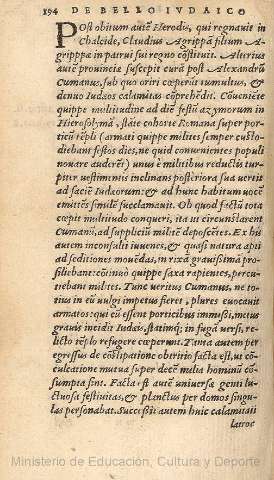 194 DE BELLO IVDAICO
Post obitum autē Herodis, qui regnauit in
Chalcide, Claudius Agrippā filium A-
grippæ in patrui sui regno cōstituit. Alterius
autē prouinciæ suscepit curā post Alexandrū
Cumanus, sub quo oriri cœperūt tumultus, &
denuo Iudæos calamitas cōprehēdit. Conuenerat
quippe multitudine ad diē festū azymorum in
Hierosolymā, stāte cohorte Romana super por-
ticū tēpli (armati quippe milites semper custo-
diebant festos dies, ne quid conueniētes populi
nouare auderēt) unus è militibus reductis tur-
piter uestimentis inclinans posteriora sua uertit
ad faciē Iudæorum: & ad hunc habitum uocē
emittēs similē succlamauit. Ob quod factū tota
cœpit multitudo conqueri, ita ut circunstarent
Cumanū, ad suppliciū militē deposcētes. Ex his
autem inconsulti iuuenes, & quasi natura apti
ad seditiones mouēdas, in rixā grauissimā pro-
siliebant: cōtinuò quippe saxa rapientes, percu-
tiebant milites. Tunc ueritus Cumanus, ne to-
tius in eū uulgi impetus fieret, plures euocauit
armatos: qui cū essent porticibus immissi, metus
grauis incidit Iudæis, statimq́; in fugā uersi, re-
licto tēplo refugere cœperunt. Tanta autem per
egressus de cōstipatione obtritio facta est, ut cō-
culcatione mutua super decē milia hominū cō-
sumpta sint. Facta est autē uniuersæ genti lu-
ctuosa festiuitas, & planctus per domos singu-
las personabat. Successit autem huic calamitati
latroc
Ministerio de Educación, Cultura y Deporte